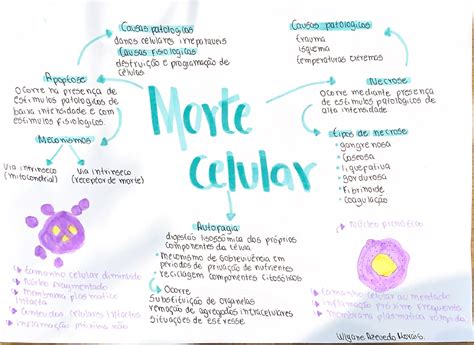 Causas patologicas
danos celulares irreparáveis
Causas fisiologicas
destruição e programação de
células
Apoptose
Ocorre na presença de
estímulos patologicos de
baixa intensidade e com
estímulos fisiologicos.
Mecanismos
Via intrinseco
(mitocondrial)
Via intrinseco
(receptor de morte)
Morte
celular
Causas patologicas
trauma
isquema
temperaturas extremas
Necrose
Ocorre mediante presença
de estímulos patologicos de
alta intensidade
tipos de necrose
gangrenosa
Caseosa
liquefativa
gordurosa
Fibrinoide
coagulação
Autofagia
digestão lisossômica dos próprios
componentes da célula
Mecanismo de sobrevivência em
períodos de privação de nutrientes
reciclagem componentes citosólicos
Ocorre
Substituição de organelas
remoção de agregados intracelulares
Situações de estresse
tamanho celular diminuido
Núcleo fragmentado
membrana plasmatica
intacta
Conteudos celulares intactos
inflamação próxima não
Núcleo picnótico
tamanho celular aumentado
inflamação próxima frequente
membrana plasmatica rompida
Azevedo